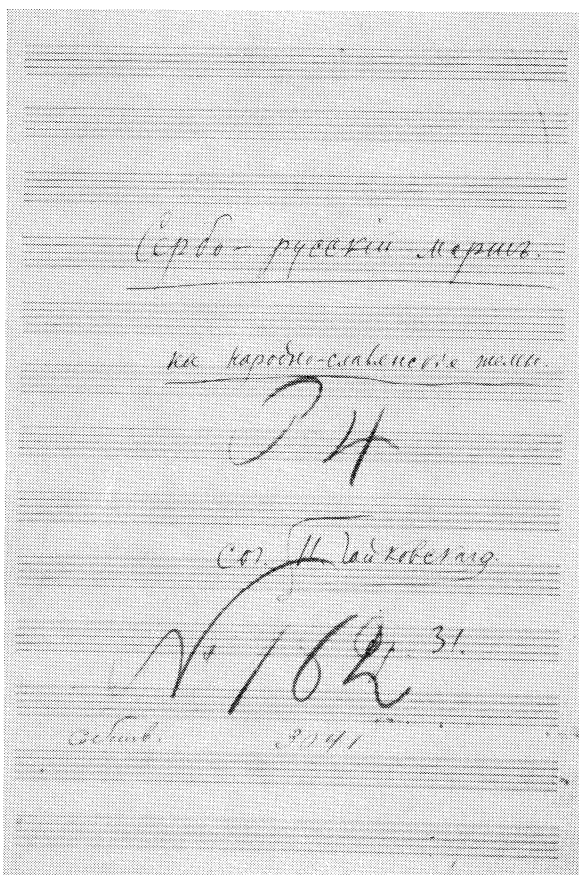 Сербо-русскій маршъ.
на народно-славянскія темы.
24
соч. П. Чайковскаго.
Op. 31.
№ 162
3041